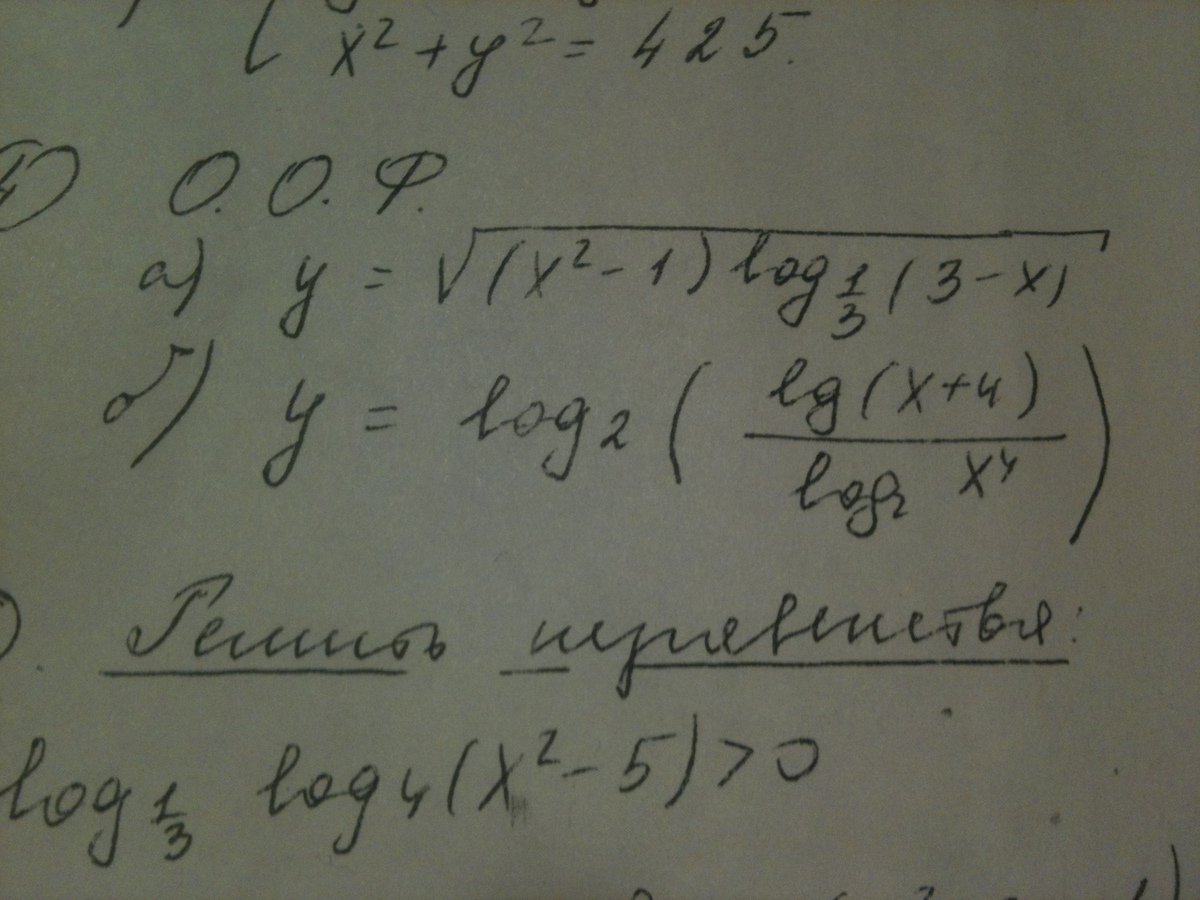 x² + y² = 425.
О. О. Ф.
а) y = √((x² - 1) log_{1/3} (3 - x)
б) y = log₂ ( lg(x+4) / log₂ x⁴ )
Решить неравенства:
log_{1/3} log₄(x² - 5) > 0